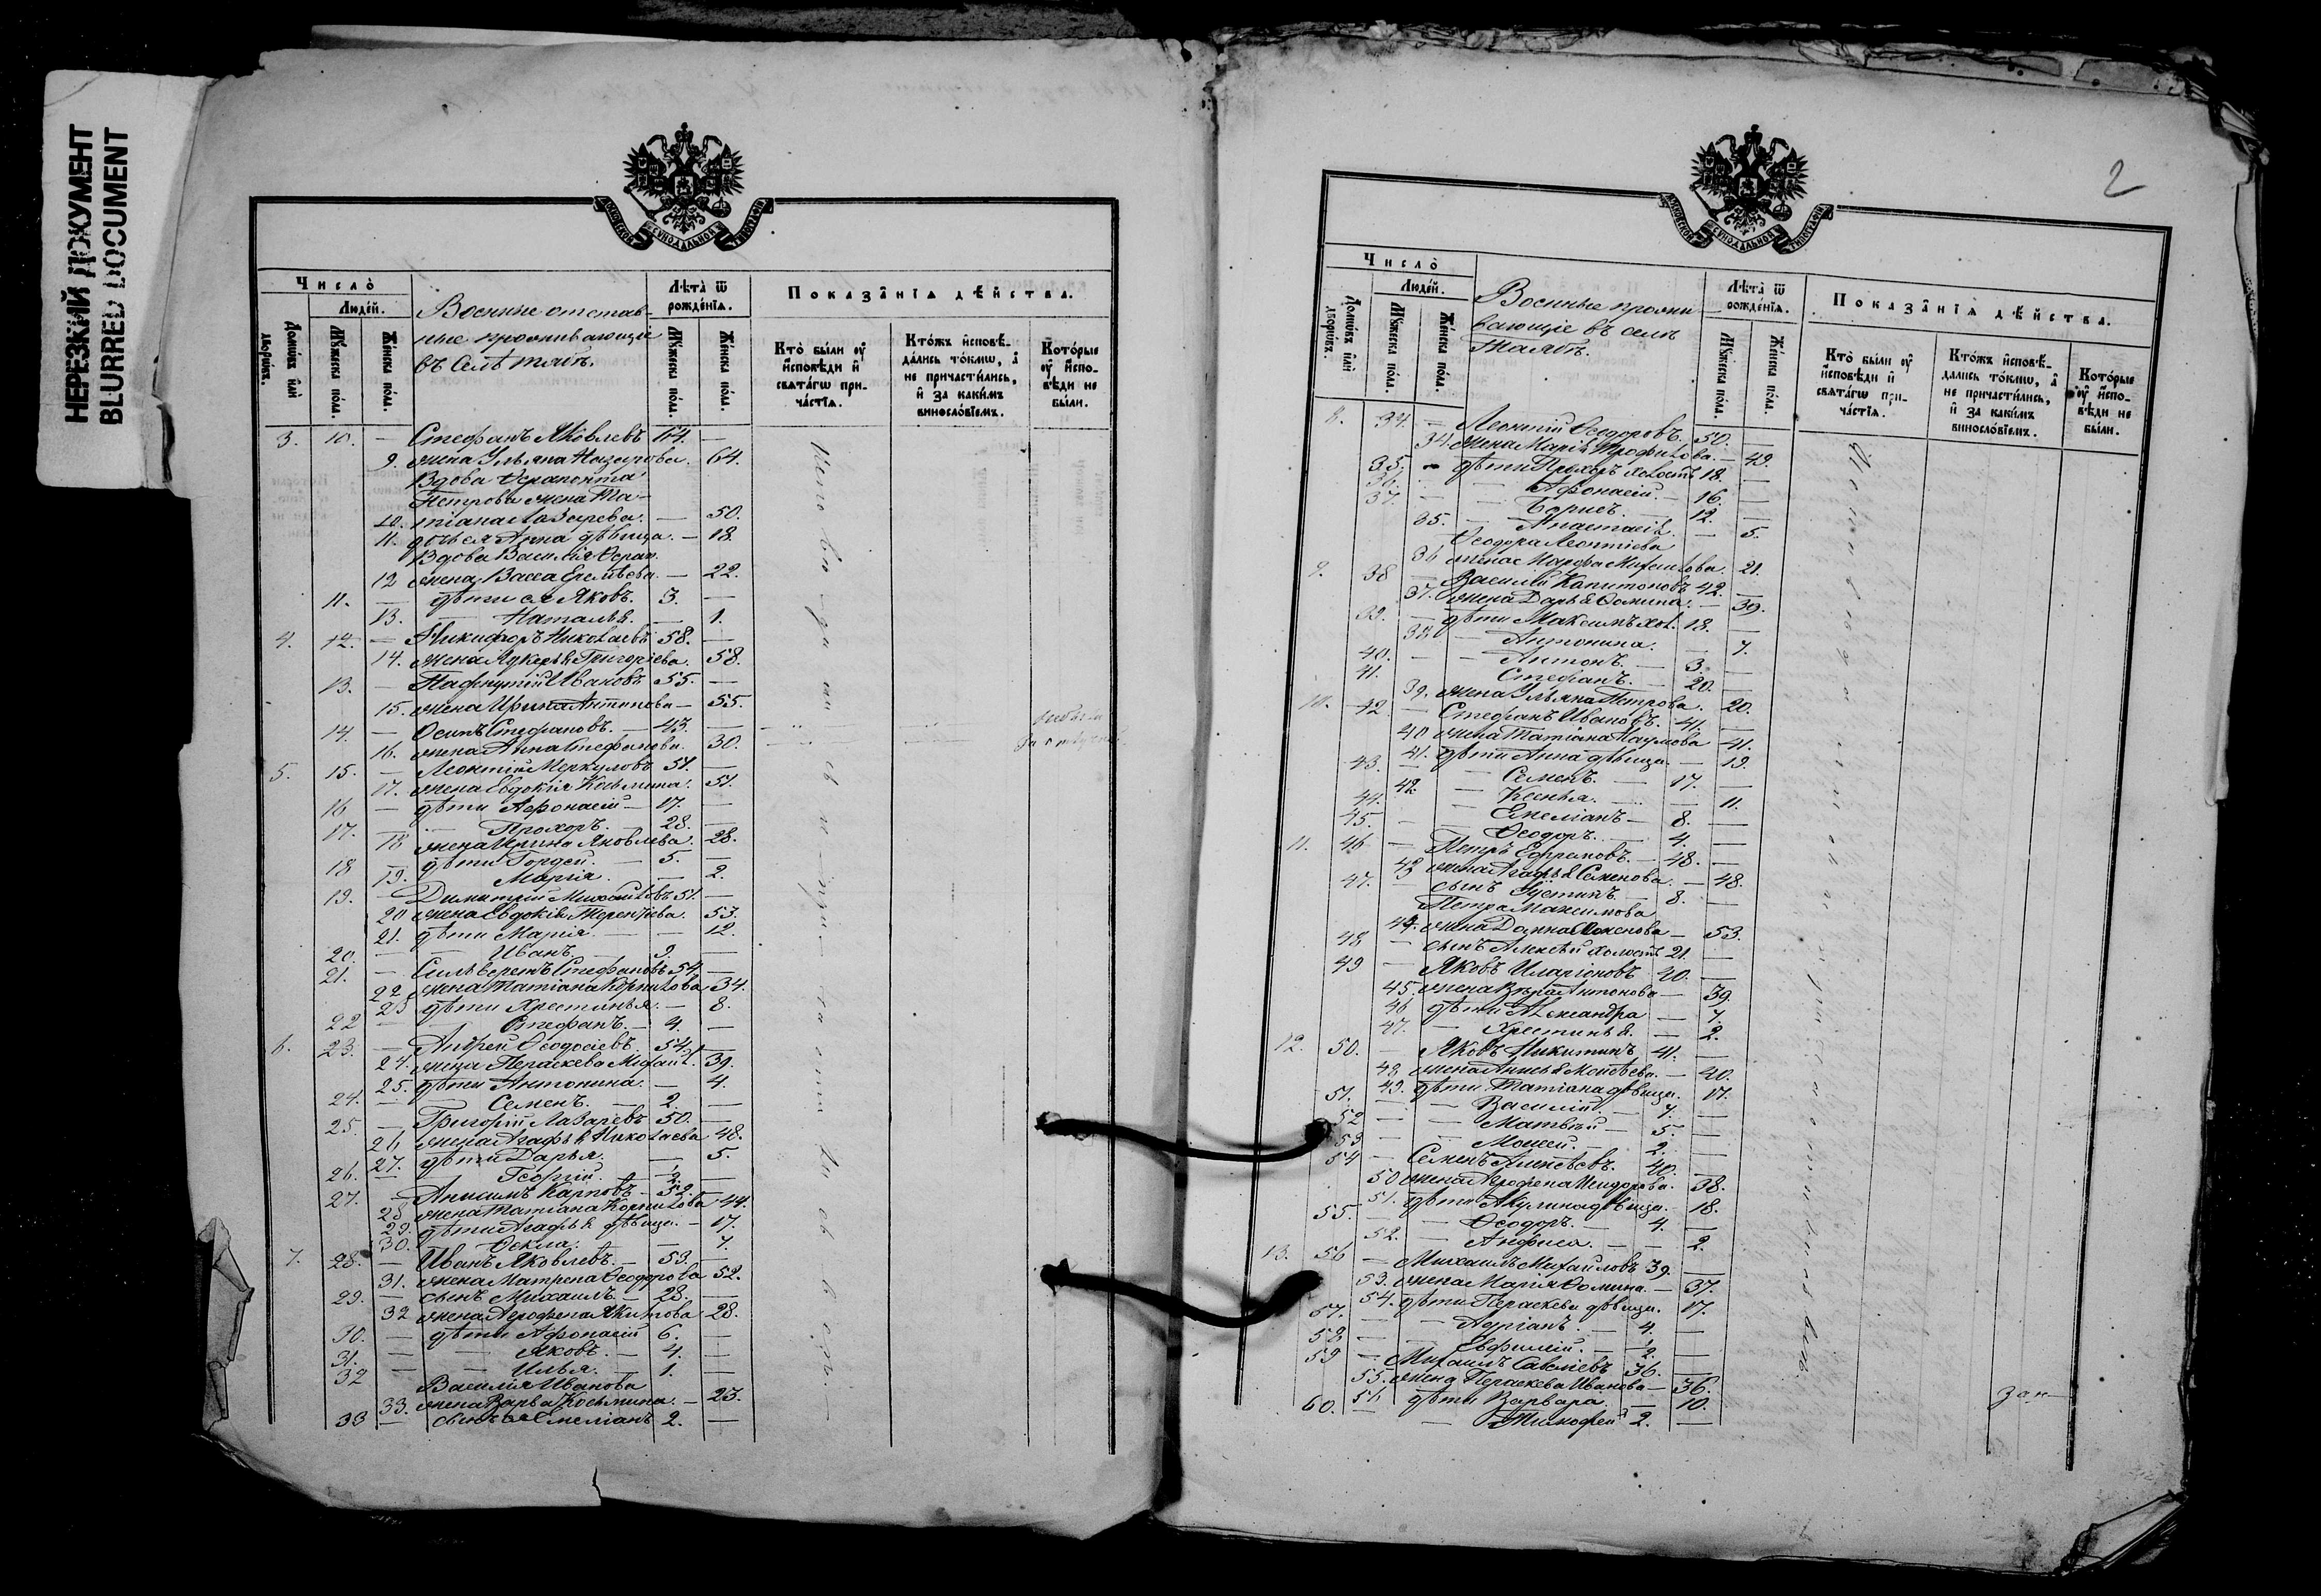 НЕРЕЗКИЙ ДОКУМЕНТ
BLURRED DOCUMENT
МОСКОВСКОЙ СѴНОДАЛЬНОЙ ТИПОГРАФІИ
Число̀
Люде́й.
Домѡ́въ и҆лѝ дворѡ́въ.
Мꙋ́жеска по́ла.
Же́нска по́ла.
Военные отстав-
ные проживающіе
въ Селѣ
Лѣта̀ ѿ рожде́нїѧ.
Мꙋ́жеска по́ла.
Же́нска по́ла.
Показа̑нїѧ дѣ́йства.
Кто̀ бы́ли ᲂу҆
и҆́сповѣди и҆
свѧта́гѡ при-
ча́стїѧ.
Кто́жъ и҆сповѣ́-
дались то́кмѡ, а҆
не причасти́лись,
и҆ за каки́мъ
винословїемъ.
Кото́рые
ᲂу҆ и҆́спо-
вѣди не
бы́ли.
3. 10. — Стефанъ Яковлевъ 64. —
9. жена Ульяна Назарова. 64.
Вдова Ферапонта
Петрова жена Та-
10. тіана Лазарева. — 50.
11. дочь ея Анна дѣвица. — 18.
Вдова Василія Ферап.
12 жена Васса Еремѣева. — 22.
11. — дѣти ея Яковъ. 3. —
13. — Наталья. — 1.
4. 12. — Никифоръ Николаевъ 58. —
14. жена Лукерья Григоріева. 58.
13. — Пафнутій Ивановъ 55. —
15. жена Ирина Антипова — 55.
14. — Осипъ Стефановъ. — 43. —
16. жена Анна Стефанова. 30.
5. 15. — Леонтій Меркуловъ 51. —
17. жена Евдокія Косьмина. 51.
16 — дѣти Афонасій — 17. —
17. — Прохоръ. — 28. —
18 жена Ирина Яковлева. 28.
18 — дѣти Гордей. — 5. —
19. Марія. — 2.
19. — Димитрій Михайловъ 51. —
20 жена Евдокія Терентіева. 53.
21. дѣти Марія. — 12.
20. — Иванъ. — 9. —
21. — Сильверстъ Стефановъ 54. —
22 жена Татіана Корнилова 34.
23 дѣти Хрестинья. — 8.
22 — Стефанъ. — 4. —
6. 23. — Андрей Феодосіевъ. 54. —
24. жена Параскева Михаил. 39.
25. дѣти Антонина. — 4.
24. — Семенъ. — 2. —
25. — Григорій Лазаревъ 50. —
26 жена Агафья Николаева 48.
27. дѣти Дарья. — 5.
26. — Георгій. — 2. —
27. — Анисимъ Карповъ — 52. —
28 жена Татіана Корнилова 44.
29. дѣти Агафья дѣвица. — 17.
30. Фекла. — 7.
7. 28. — Иванъ Яковлевъ. — 53. —
31. жена Матрена Феодорова 52.
29. — сынъ Михаилъ. — 28. —
32 жена Акимова 28.
30. — дѣти Афонасій 6. —
31. — Яковъ. — 4. —
32 — Илья. — 1. —
Василія Иванова
33. жена Варвара Косьмина. — 23.
33 — сынъ ея Емеліанъ 2. —
Исповѣдались и пріобщались всѣ
2
МОСКОВСКОЙ СѴНОДАЛЬНОЙ ТИПОГРАФІИ
Число̀
Люде́й.
Домѡ́въ и҆лѝ дворѡ́въ.
Мꙋ́жеска по́ла.
Же́нска по́ла.
Военные прожи
вающіе въ селѣ
Лѣта̀ ѿ рожде́нїѧ.
Мꙋ́жеска по́ла.
Же́нска по́ла.
Показа̑нїѧ дѣ́йства.
Кто̀ бы́ли ᲂу҆
и҆́сповѣди и҆
свѧта́гѡ при-
ча́стїѧ.
Кто́жъ и҆сповѣ́-
дались то́кмѡ, а҆
не причасти́лись,
и҆ за каки́мъ
винословїемъ.
Кото́рые
ᲂу҆ и҆́спо-
вѣди не
бы́ли.
8. 34. — Леонтій Феодоровъ. 50. —
34. жена Марія Трофимова. — 49.
35. — дѣти Прохоръ холостъ 18. —
36. — Афонасій. — 16. —
37. — Борисъ. — 12. —
35. — Анастасія. — 5.
Феодора Леонтіева
36 жена Марфа Михаилова. 21.
9. 38 — Василій Капитоновъ 42. —
37. жена Дарья Фомина. — 39.
39. — дѣти Максимъ хол. 18. —
38 — Антонина. — 7.
40. — Антонъ. — 3. —
41. — Стефанъ. — 20. —
39. жена Ульяна Петрова. 20.
10. 42. — Стефанъ Ивановъ. 41. —
40 жена Татіана Наумова 41.
41. дѣти Анна дѣвица. — 19.
43. — Семенъ. — 17. —
42 — Ксенья. — 11.
44. — Емеліанъ — 8. —
45. — Феодоръ. — 4. —
11. 46 — Петръ Ефремовъ. — 48. —
43 жена Агафья Семенова. — 48.
47. — сынъ Устинъ. — 8. —
Петра Максимова
44. жена Домна — 53.
48 — сынъ Алексѣй холостъ 21. —
49 — Яковъ Иларіоновъ 40. —
45. жена Вѣра Антонова — 39.
46 дѣти Александра — 7.
47. — Хрестинья. — 2.
12. 50. — Яковъ Никитинъ 41. —
48 жена Анисья Моисѣева. — 40.
49. дѣти Татіана дѣвица. 17.
51. — Василій. — 7. —
52 — Матвѣй — 5. —
53 — Моисей. — 2. —
54 — Семенъ Алексѣевъ. 40. —
50 жена 38.
51. дѣти Акулина дѣвица. 18.
55. — Феодоръ. — 4. —
52. — Анфиса. — 2.
13. 56 — Михаилъ Михайловъ 39. —
53. жена Марія Фомина. — 37.
54. дѣти Параскева дѣвица. 17.
57. — Адріанъ. — 4. —
58 — Евфимій. — 2. —
59 — Михаилъ Савеліевъ 36. —
55. жена Параскева Иванова — 36.
56 дѣти Варвара. — 10.
60. — Тимофей 2. —